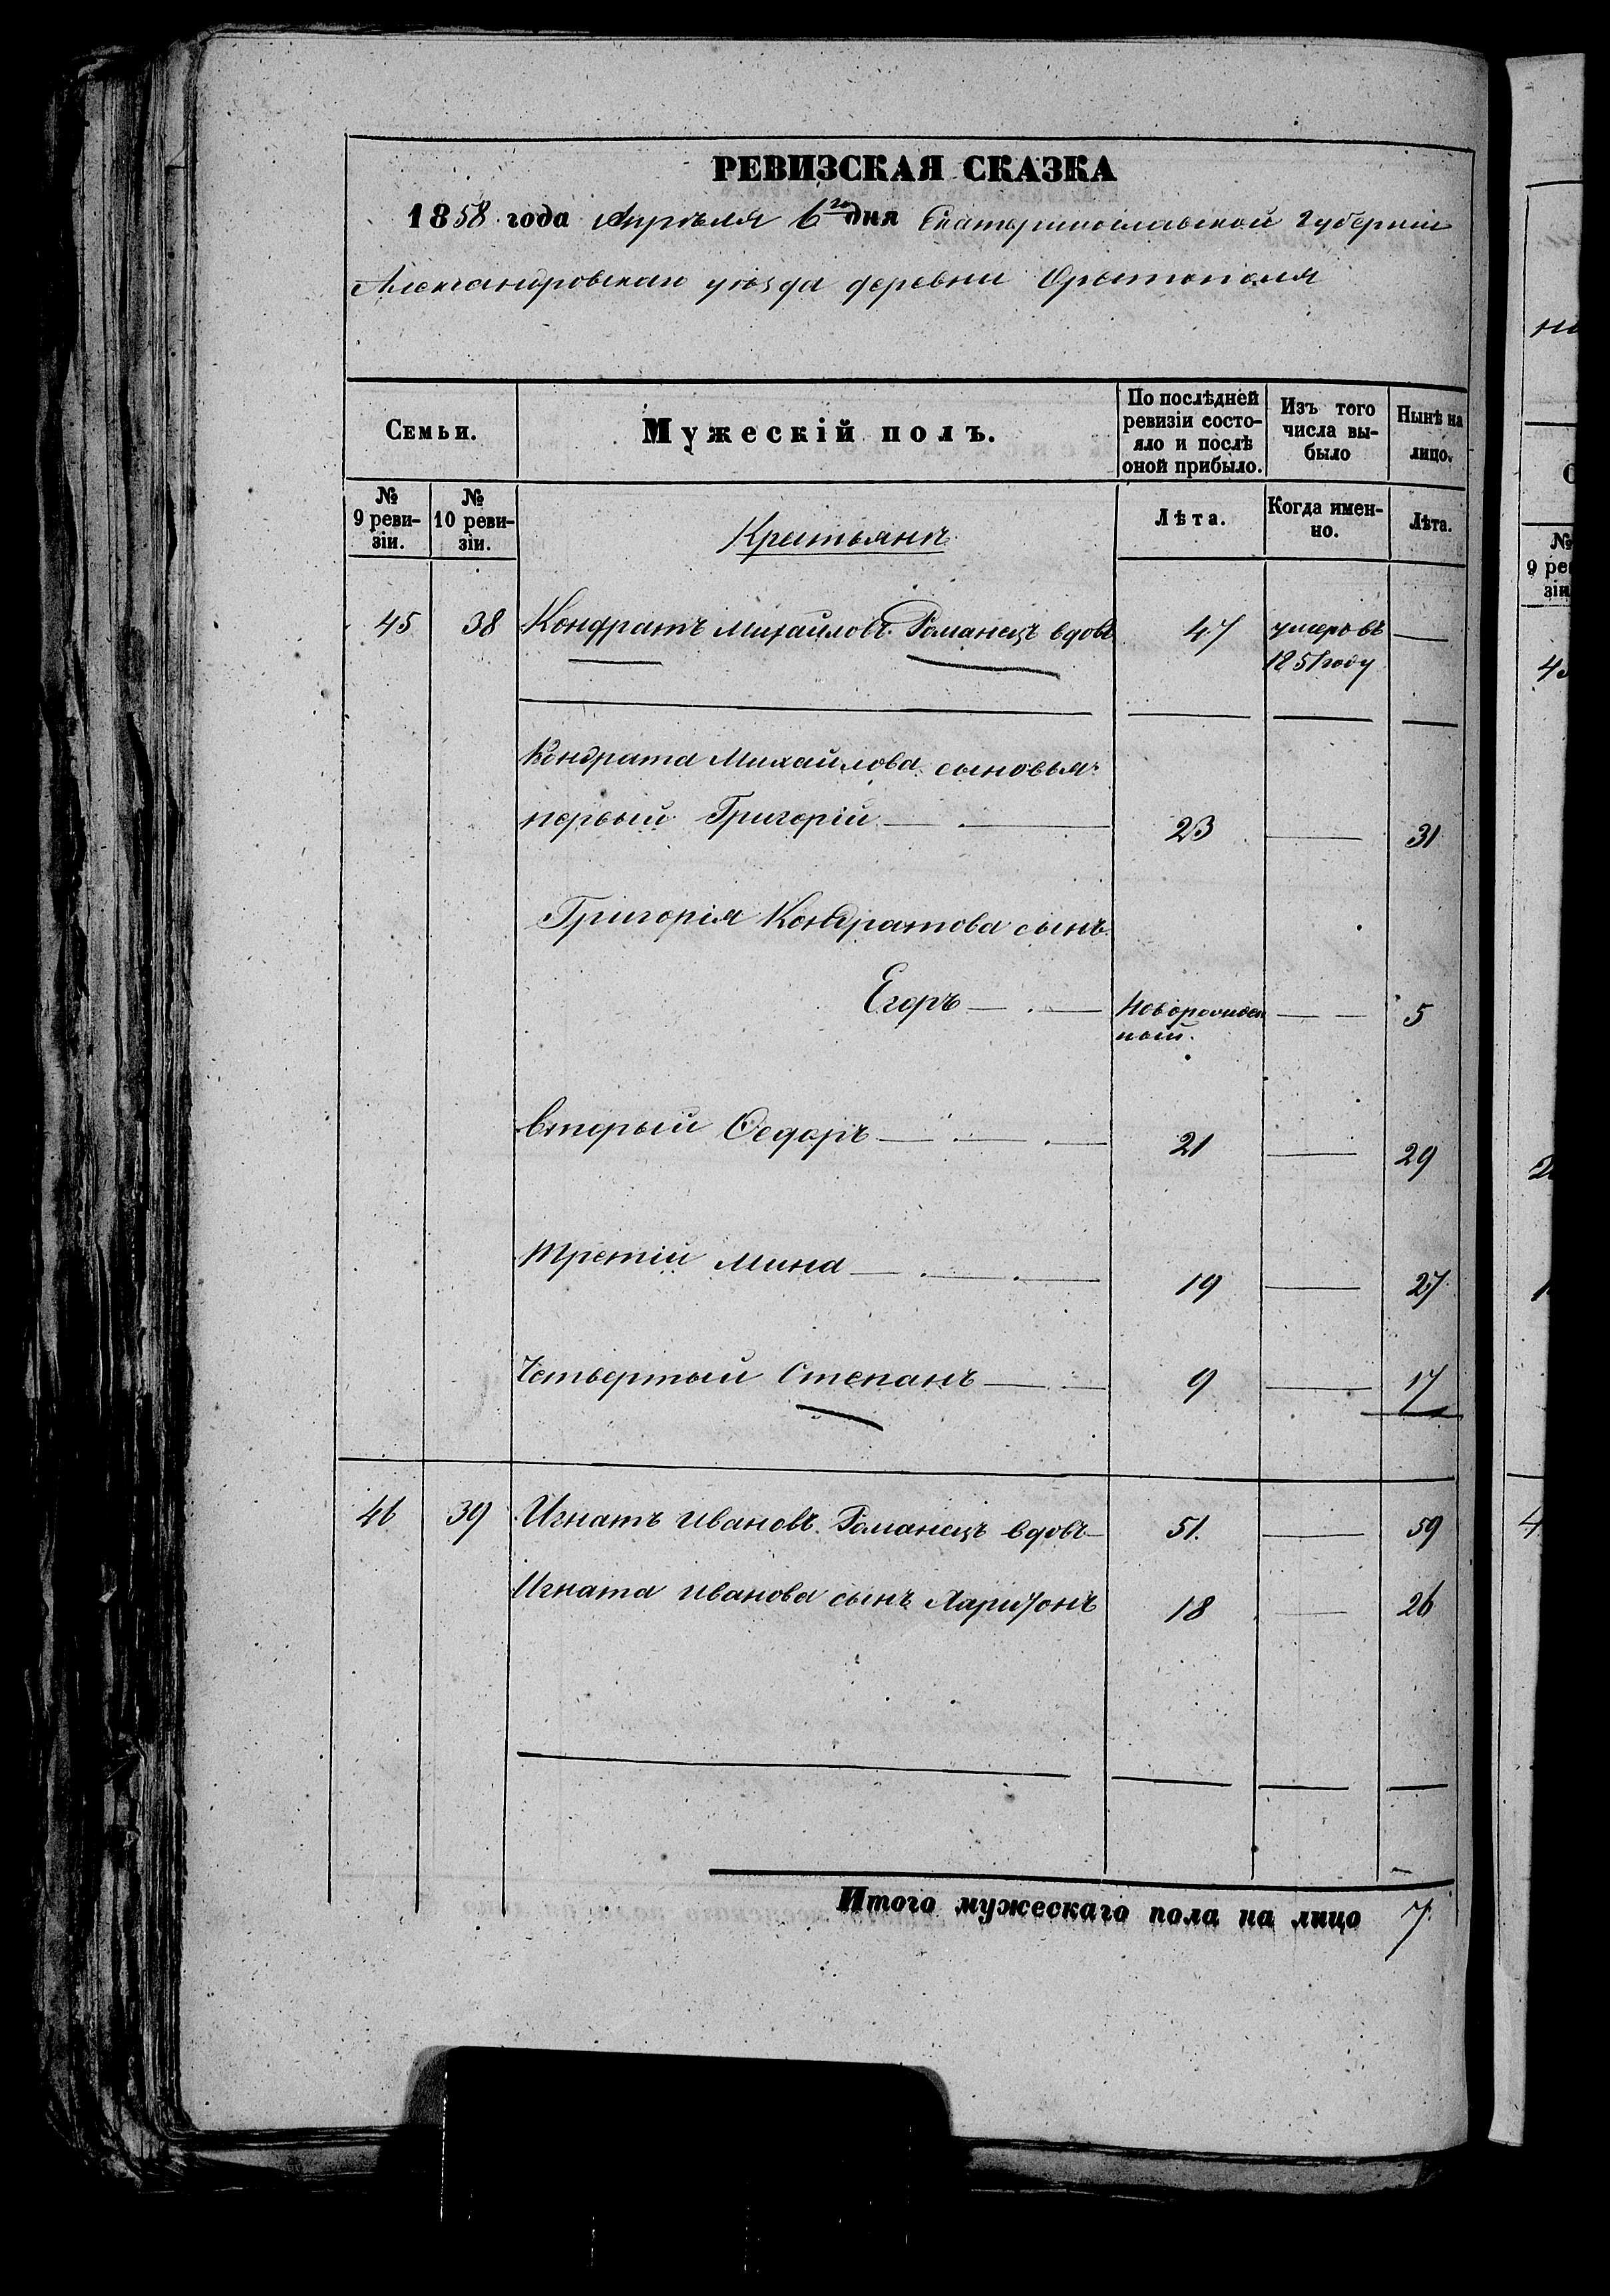 РЕВИЗСКАЯ СКАЗКА
1858 года Апрѣля 6го дня Екатеринославской Губерніи
Александровскаго уѣзда деревни
Семьи.
Мужескій полъ.
По послѣдней ревизіи состояло и послѣ оной прибыло.
Изъ того числа выбыло
Нынѣ на лицо.
№ 9 ревизіи.
№ 10 ревизіи.
Крестьянъ
Лѣта.
Когда именно.
Лѣта.
45 38 Кондратъ Михайловъ Романецъ вдовъ 47 умеръ въ —
1851 году
Кондрата Михайлова сыновья
первый Григорій — 23 — 31
Григорія Кондратова сынъ
Егоръ — Новорожден — 5
ный.
вторый Ѳедоръ — 21 — 29
Третій Мина — 19 — 27
Четвертый Степанъ — 9 — 17
46 39 Игнатъ Ивановъ Романецъ вдовъ 51. — 59
Игната Иванова сынъ Ларифонъ 18 — 26
Итого мужескаго пола на лицо 7.
9 реви
зіи